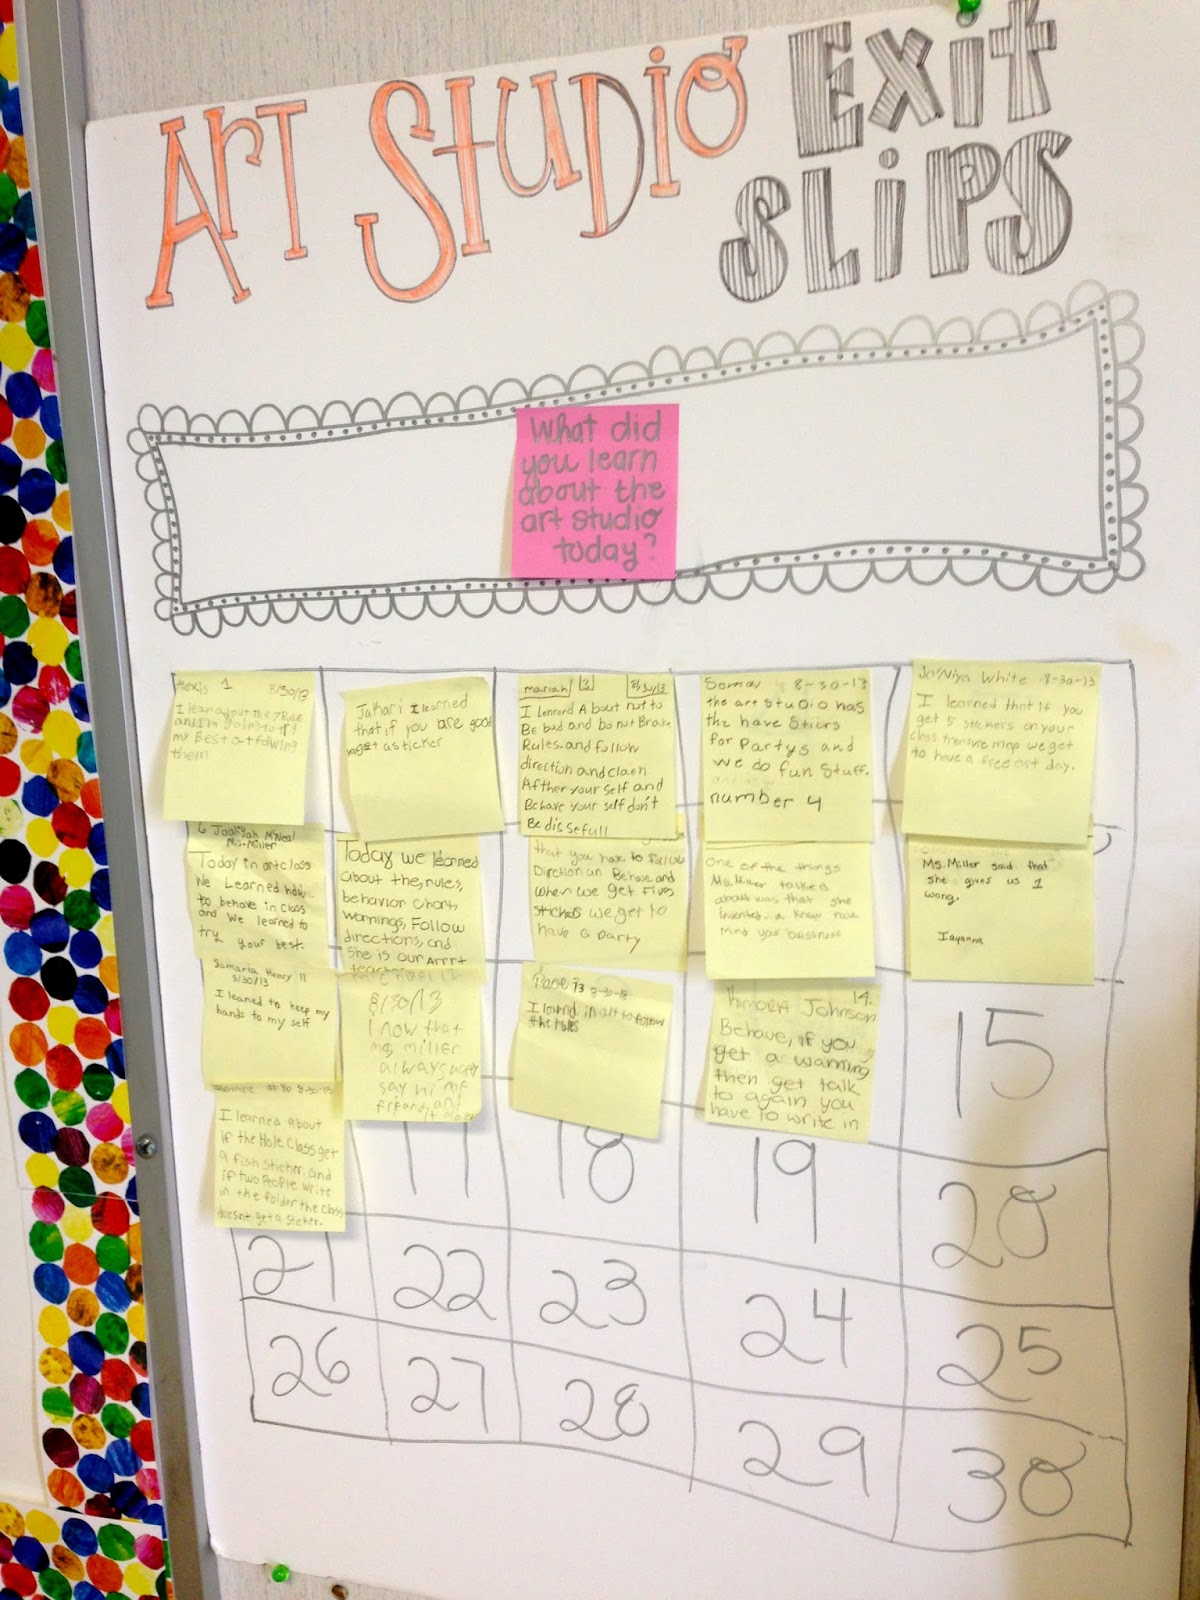 Art Studio Exit
Slips
What did
you learn
about the
art studio
today?
Alexis 1 8/30/13
I learn about the 7 Rule
my Best at folwing
them
Jakari I learned
that if you are good
get a sticker
mariah 3 8/30/13
I Lenrord About not to
Be bad and bo not Brake
Rules. and follow
direction and claen
Afther your self and
Behave your self don't
Be dissefull
8-30-13
the art studio has
the have Stiers
for Partys and
we do fun Stuff.
number 4
Ja'Niya White 8-30-13
I learned that if you
get 5 stickers on your
class treasure map we get
to have a free art day.
6 Jaaliyah McNeal
Ms. Miller
Today in art class
We Learned how
to behave in class
and we learned to
try your best.
Today we learned
about the, rules,
behavior chart,
warnings, Follow
directions, and
She is our Arrrt
that you have to follow
Dirction an Behave and
when we get Fives
stickes we get to
have a Party
one of the things
Ms. Miller talked
about was that she
invented a know rule
mind your bassness
Ms. Miller said that
she gives us 1
wong.
Iayanna
Samaria Henry 11
8/30/13
I leaned to keep my
hands to my self
8/30/13
I now that
ms miller
always
say hi
13 8-30-13
I learnd in art to follow
the rules
14.
Kimora Johnson
Behave, if you
get a warnning
then get talk
to again you
have to write in
15
8-30-13
I learned about
if the Hole Class get
a fish sticker. and
if two People write
in the folder the class
doesnt get a sticher.
17
18
19
20
21
22
23
24
25
26
27
28
29
30